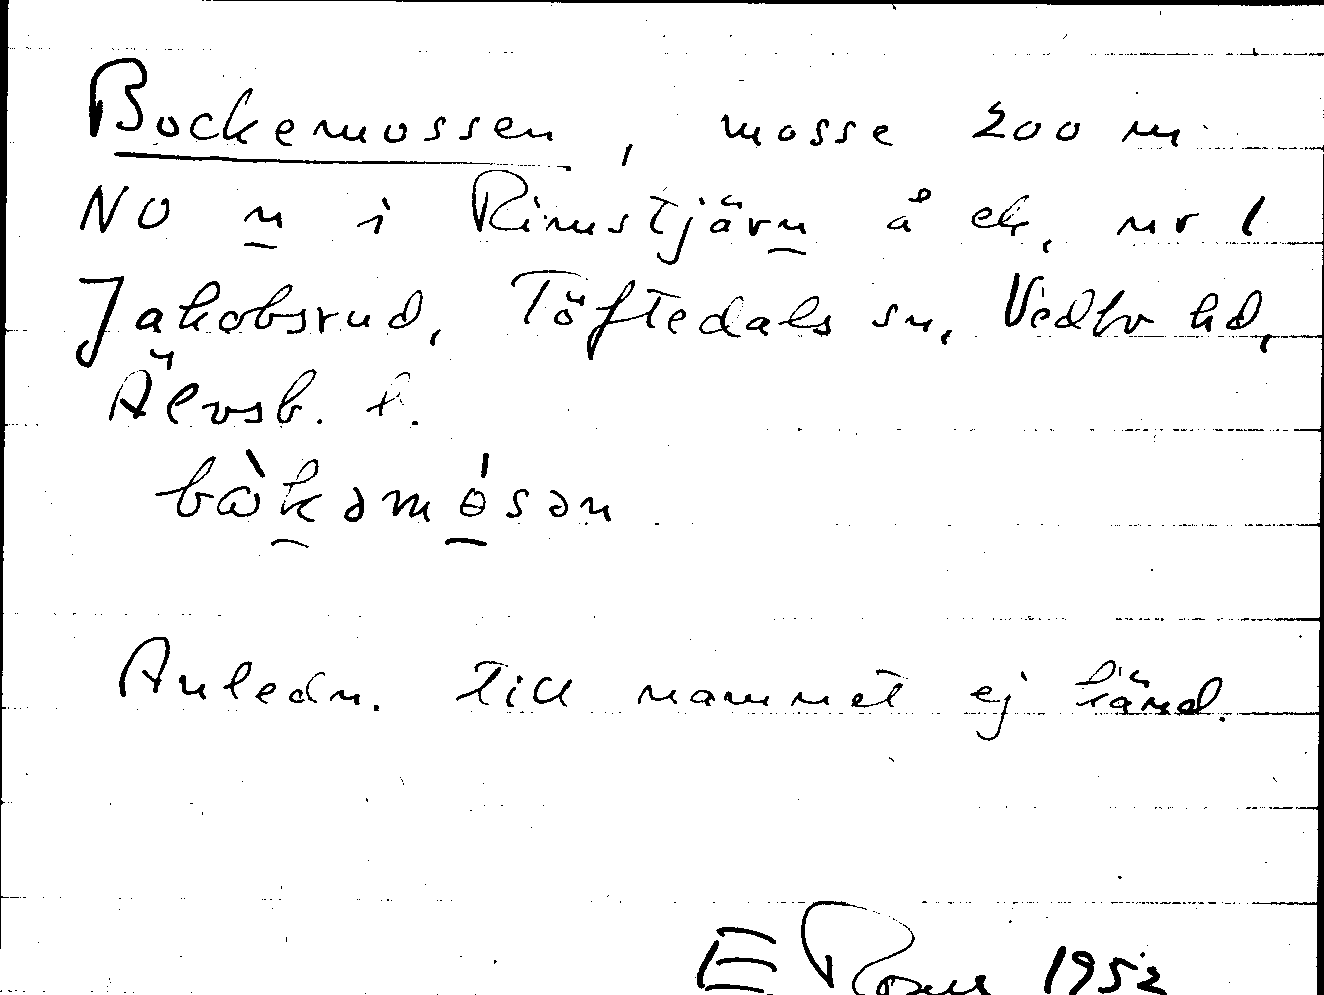 Bockemossen, mosse 200 m
NO n i Rimstjärn å ek. nr 1
Jakobsrud, Töftedals sn, Vedbo hd,
Älvsb. l.
bàkəmósən
Anledn. till namnet ej känd.
E 1952